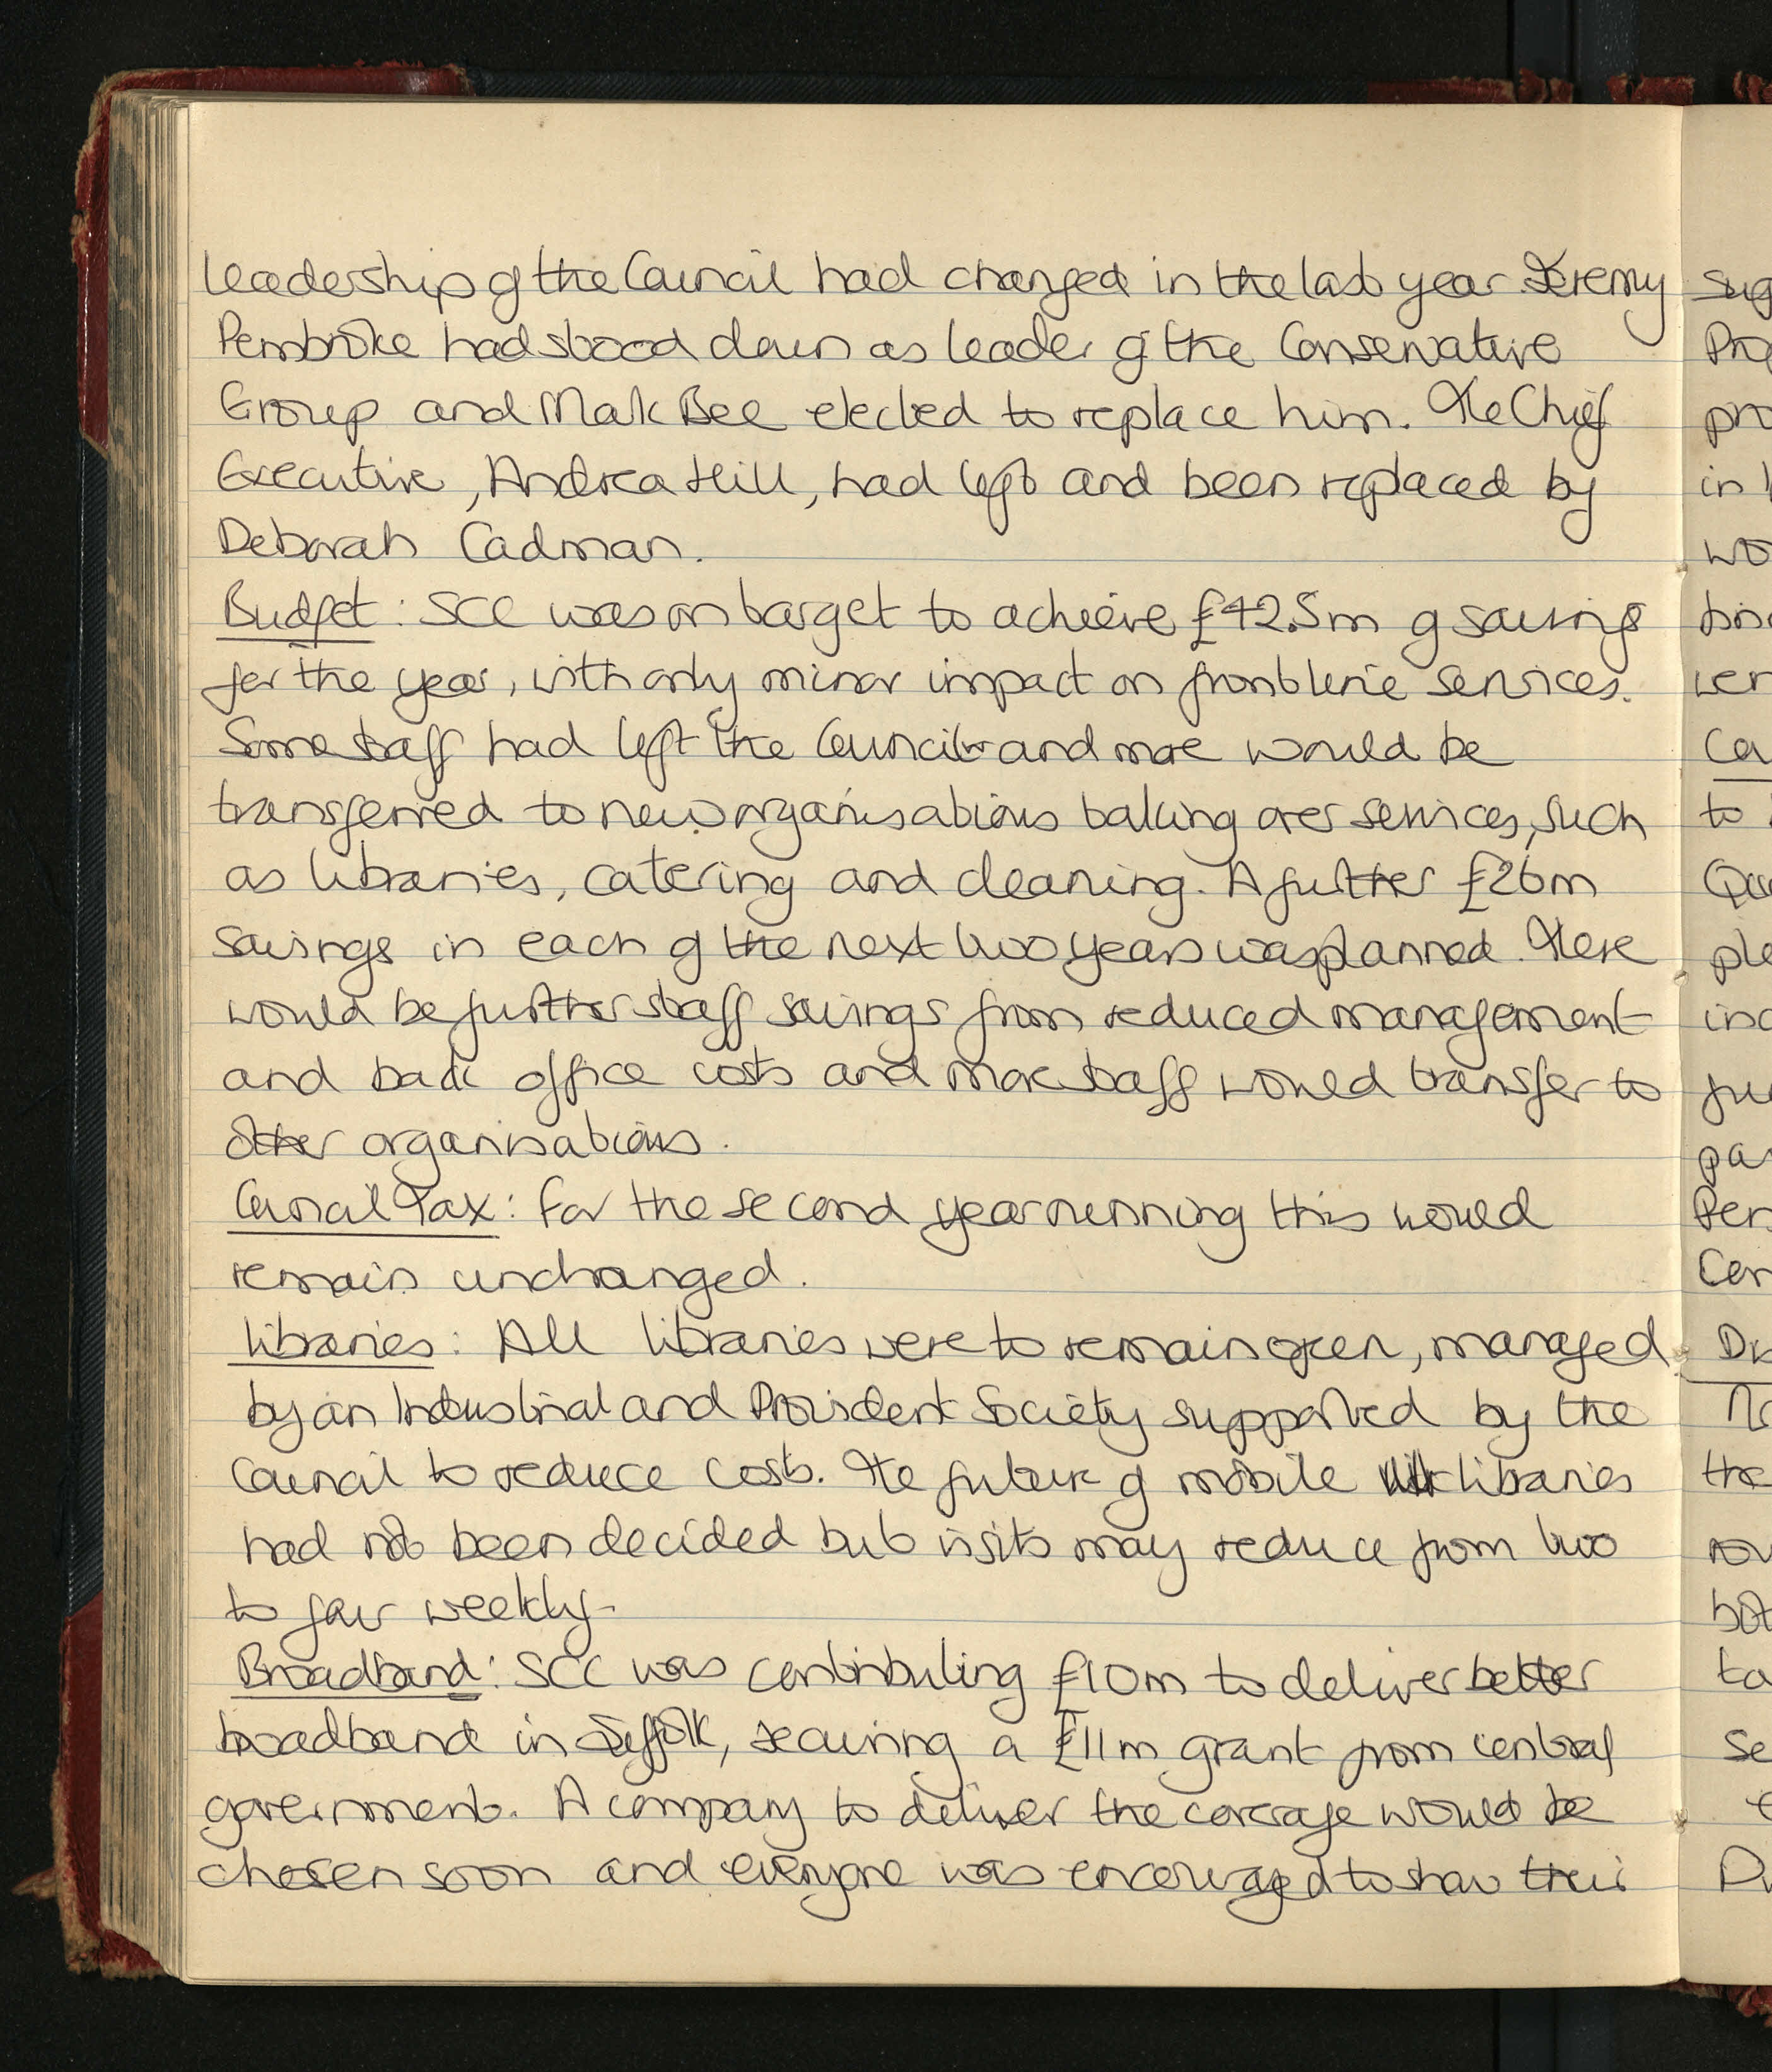 leadership of the Council had changed in the last year Jeremy
Pembroke had stood down as leader of the Conservative
Group and Mark Bee elected to replace him. The Chief
Executive, Andrea Hill, had left and been replaced by
Deborah Cadman.
Budget: SCC was on target to achieve £42.5m of savings
for the year, with only minor impact on frontline services.
Some staff had left the Council and more would be
transferred to new organisations taking over services, such
as libraries, catering and cleaning. A further £26m
savings in each of the next two years was planned. There
would be further staff savings from reduced management
and back office costs and more staff would transfer to
other organisations.
Council Tax: For the second year running this would
remain unchanged.
Libraries: All libraries were to remain open, managed
by an Industrial and Provident Society supported by the
Council to reduce costs. The future of mobile libraries
had not been decided but visits may reduce from two
to four weekly.
Broadband: SCC was contributing £10m to deliver better
broadband in Suffolk, securing a £11m grant from central
government. A company to deliver the coverage would be
chosen soon and everyone was encouraged to show their